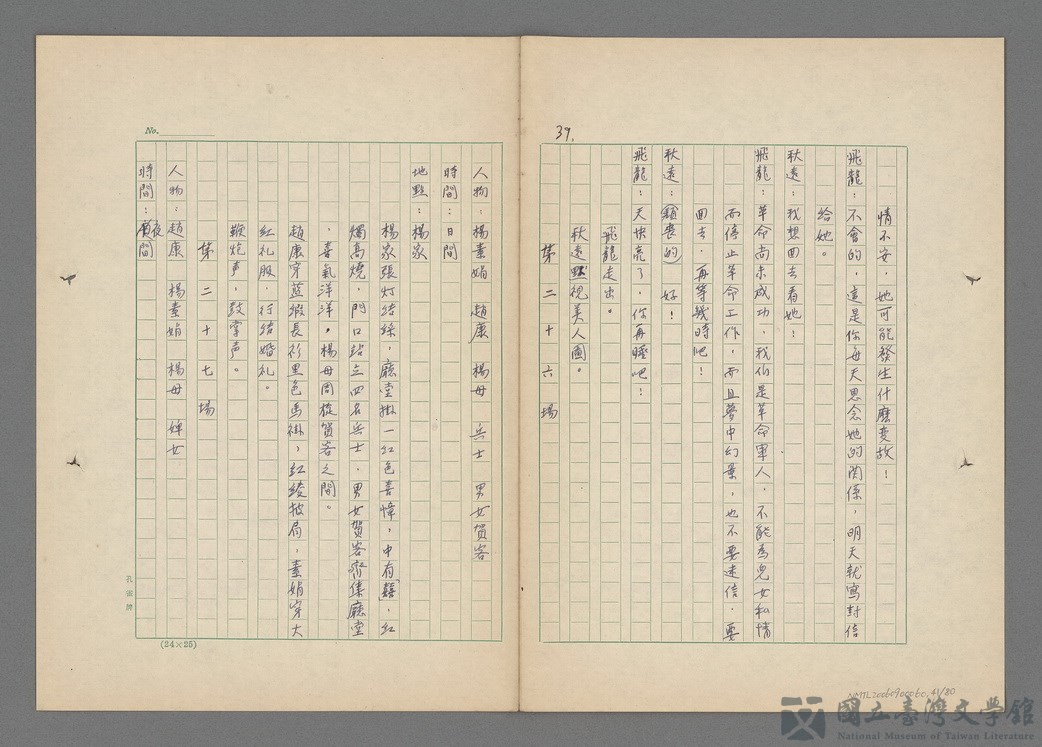 39.
情不安，她可能發生什麼变故！
飛龍：不會的，這是你每天思念她的関係，明天就寫封信
給她。
秋遠：我想回去看她！
飛龍：革命尚未成功，我们是革命軍人，不能為兒女私情
而停止革命工作，而且夢中幻景，也不要迷信，要
回去，再等幾時吧！
秋遠：(頹喪的) 好！
飛龍：天快亮了，你再睡吧！
飛龍走出。
秋遠默視美人圖。
第二十六場
No.
人物：楊素娟 趙康 楊母 兵士 男女賀客
時間：日間
地點：楊家
楊家張灯结綵，廳堂掛一红色喜幛，中有囍，红
燭高燒，門口站立四名兵士，男女賀客齊集廳堂
，喜氣洋洋，楊母周旋賀客之間。
趙康穿蓝緞長衫黑色馬褂，红綾披肩，素娟穿大
红礼服，行结婚礼。
鞭炮声，鼓掌声。
第二十七場
人物：趙康 楊素娟 楊母 婢女
時間：夜間
孔雀牌
(24×25)
NMTL20060900060.41/80
國立臺灣文學館
National Museum of Taiwan Literature